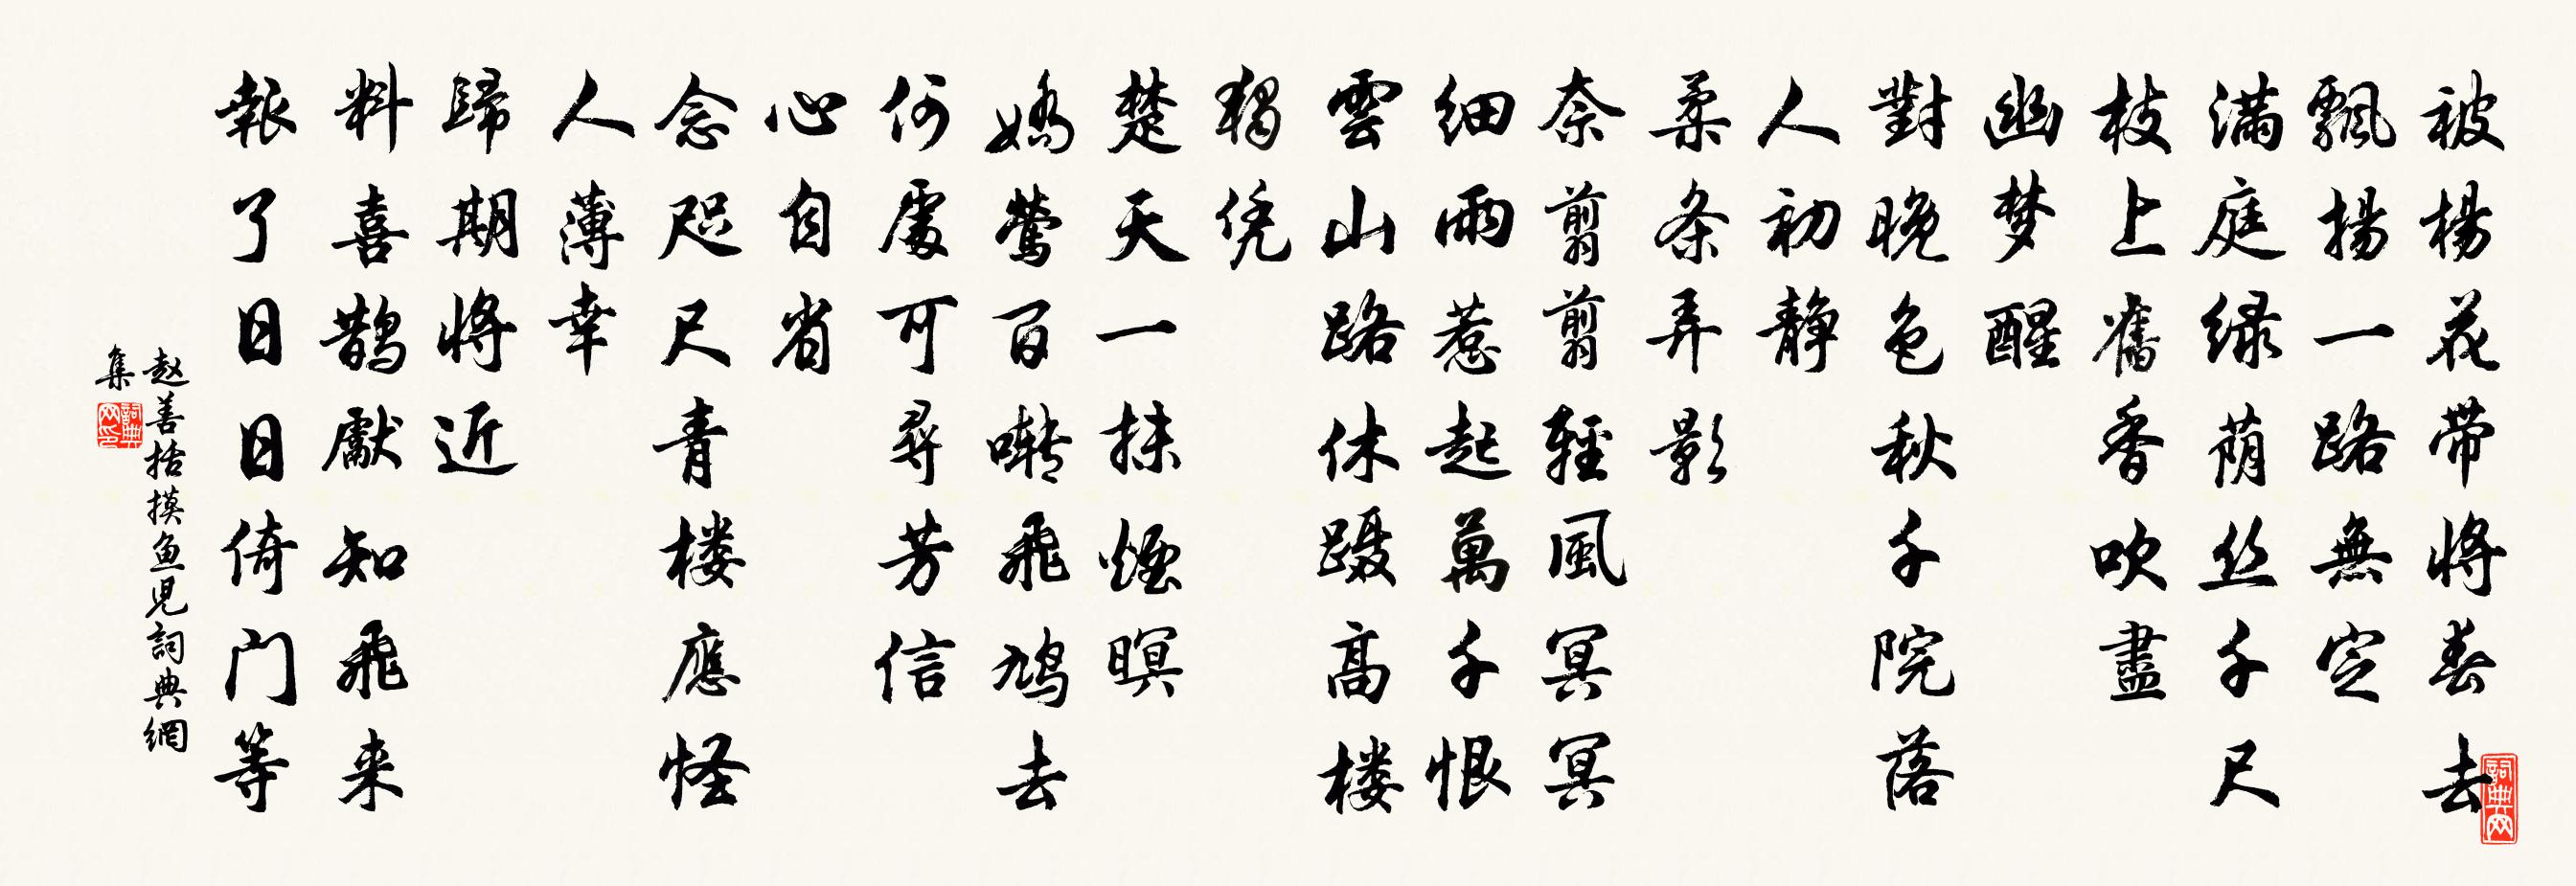 被楊花带將春去
飄揚一路無定
满庭绿荫丝千尺
枝上舊香吹盡
幽梦醒
對晚色秋千院落
人初静
柔条弄影
奈剪剪輕風冥冥
细雨惹起萬千恨
雲山路休蹑高楼
獨凭
楚天一抹煙暝
嬌莺百啭飛鸠去
何處可尋芳信
心自省
念咫尺青楼應怪
人薄幸
歸期將近
料喜鹊獻知飛来
報了日日倚门等
赵善括摸鱼児詞典網
集
詞典网
詞典网印